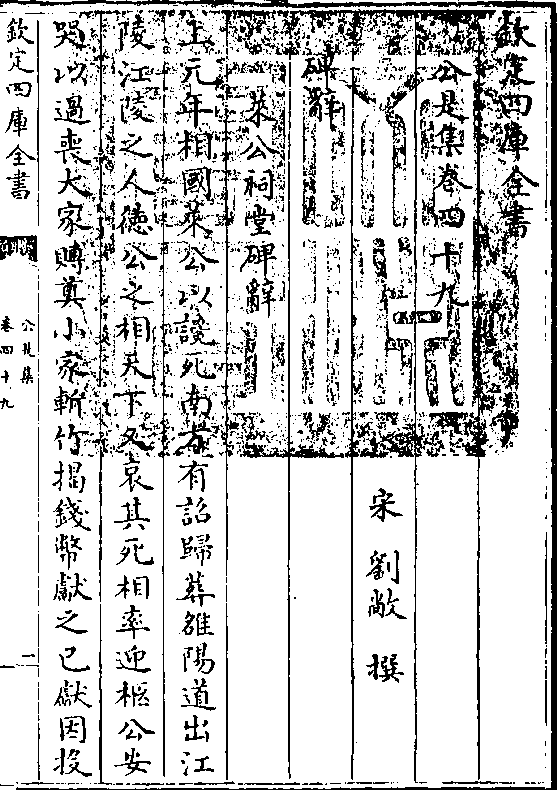 欽定四庫全書
公是集卷四十九
宋 劉敞 撰
碑辭
萊公祠堂碑辭
上元年相國萊公以謫死南方有詔歸葬雒陽道出江
陵江陵之人德公之相天下又哀其死相率迎柩公安
哭以過喪大家賻奠小家斬竹揭錢幣獻之已獻因投
欽定四庫全書
公是集
卷四十九
一